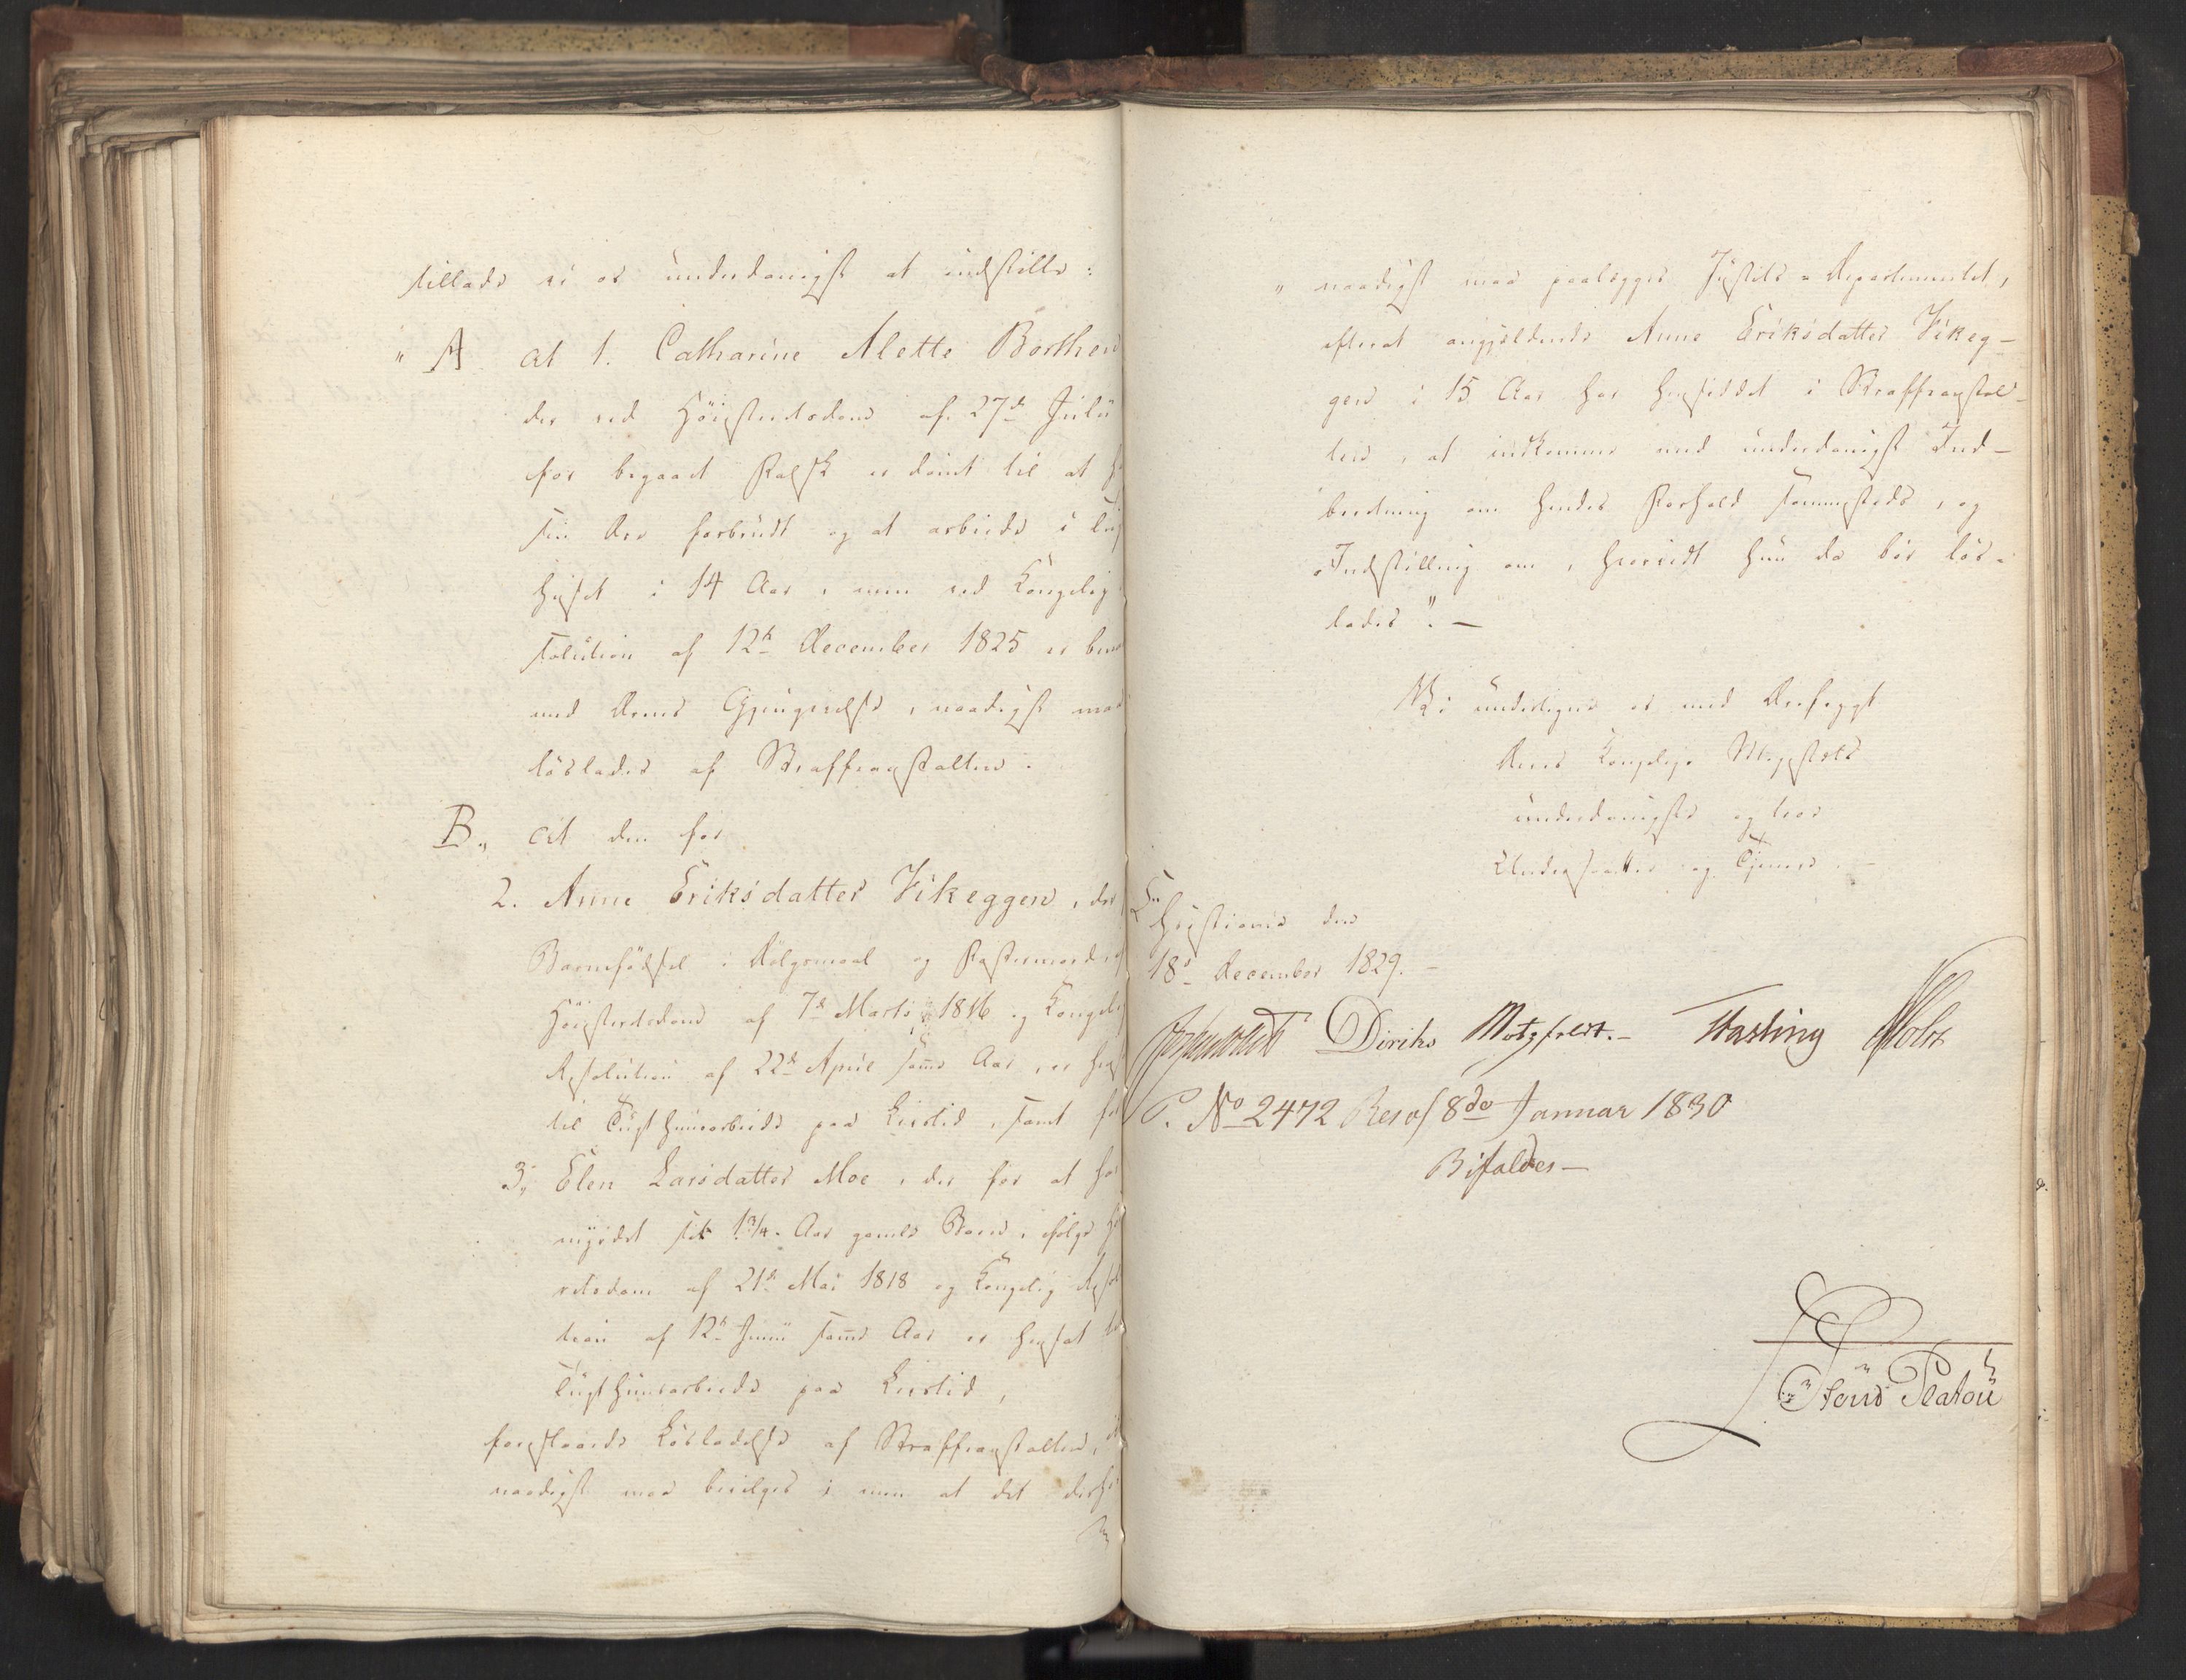 tillade vi os underdanigst at indstille:
" A at 1. Catharine Alette Borthen
der ved Høiesteretsdom af 27de Julii
for begaaet Falsk er dømt til at h
sin Ære forbrudt og at arbeide i Tug
huset i 14 Aar, men ved Kongelig
solution af 12te December 1825 er bena
med Ærens Gjengivelse, naadigst maa
løslades af Straffeanstalten.
B., at den for
2. Anne Eriksdatter Vikeggen, der
Barnefødsel i Dølgsmaal og Fostermord,
Høiesteretsdom af 7de Marts 1816 og Kongelig
Resolution af 22de April samme Aar, er hen
til Tugthuusarbeide paa Livstid, samt for
3, Elen Larsdatter Moe, der for at ha
myrdet sit 1 3/4 Aar gamle Barn, ifølge Hø
retsdom af 21de Mai 1818 og Kongelig Resol
tion af 12te Junii samme Aar er hensat til
Tugthuusarbeide paa Livstid,
foreslaaede Løsladelse af Straffeanstalten, ei
naadigst maa bevilges; men at det derhos
" naadigst maa paalægges Justits-Departementet,
efterat angjældende Anne Eriksdatter Vikeg-
gen i 15 Aar har hensiddet i Straffeanstal-
ten, at indkomme med underdanigst Ind-
beretning om hendes Forhold sammesteds, og
Indstilling om, hvorvidt hun da bør løs-
lades". -
Vi undertegne os med Ærefrygt
Deres Kongelige Majestæts
underdanigste og troe
Undersaatter og Tjenere. -
Christiania den
18de December 1829. -
Diriks Motzfeldt. - Fasting Holst
P. No 2472 Resol 8de Januar 1830
Bifaldes -
Stoud Platou